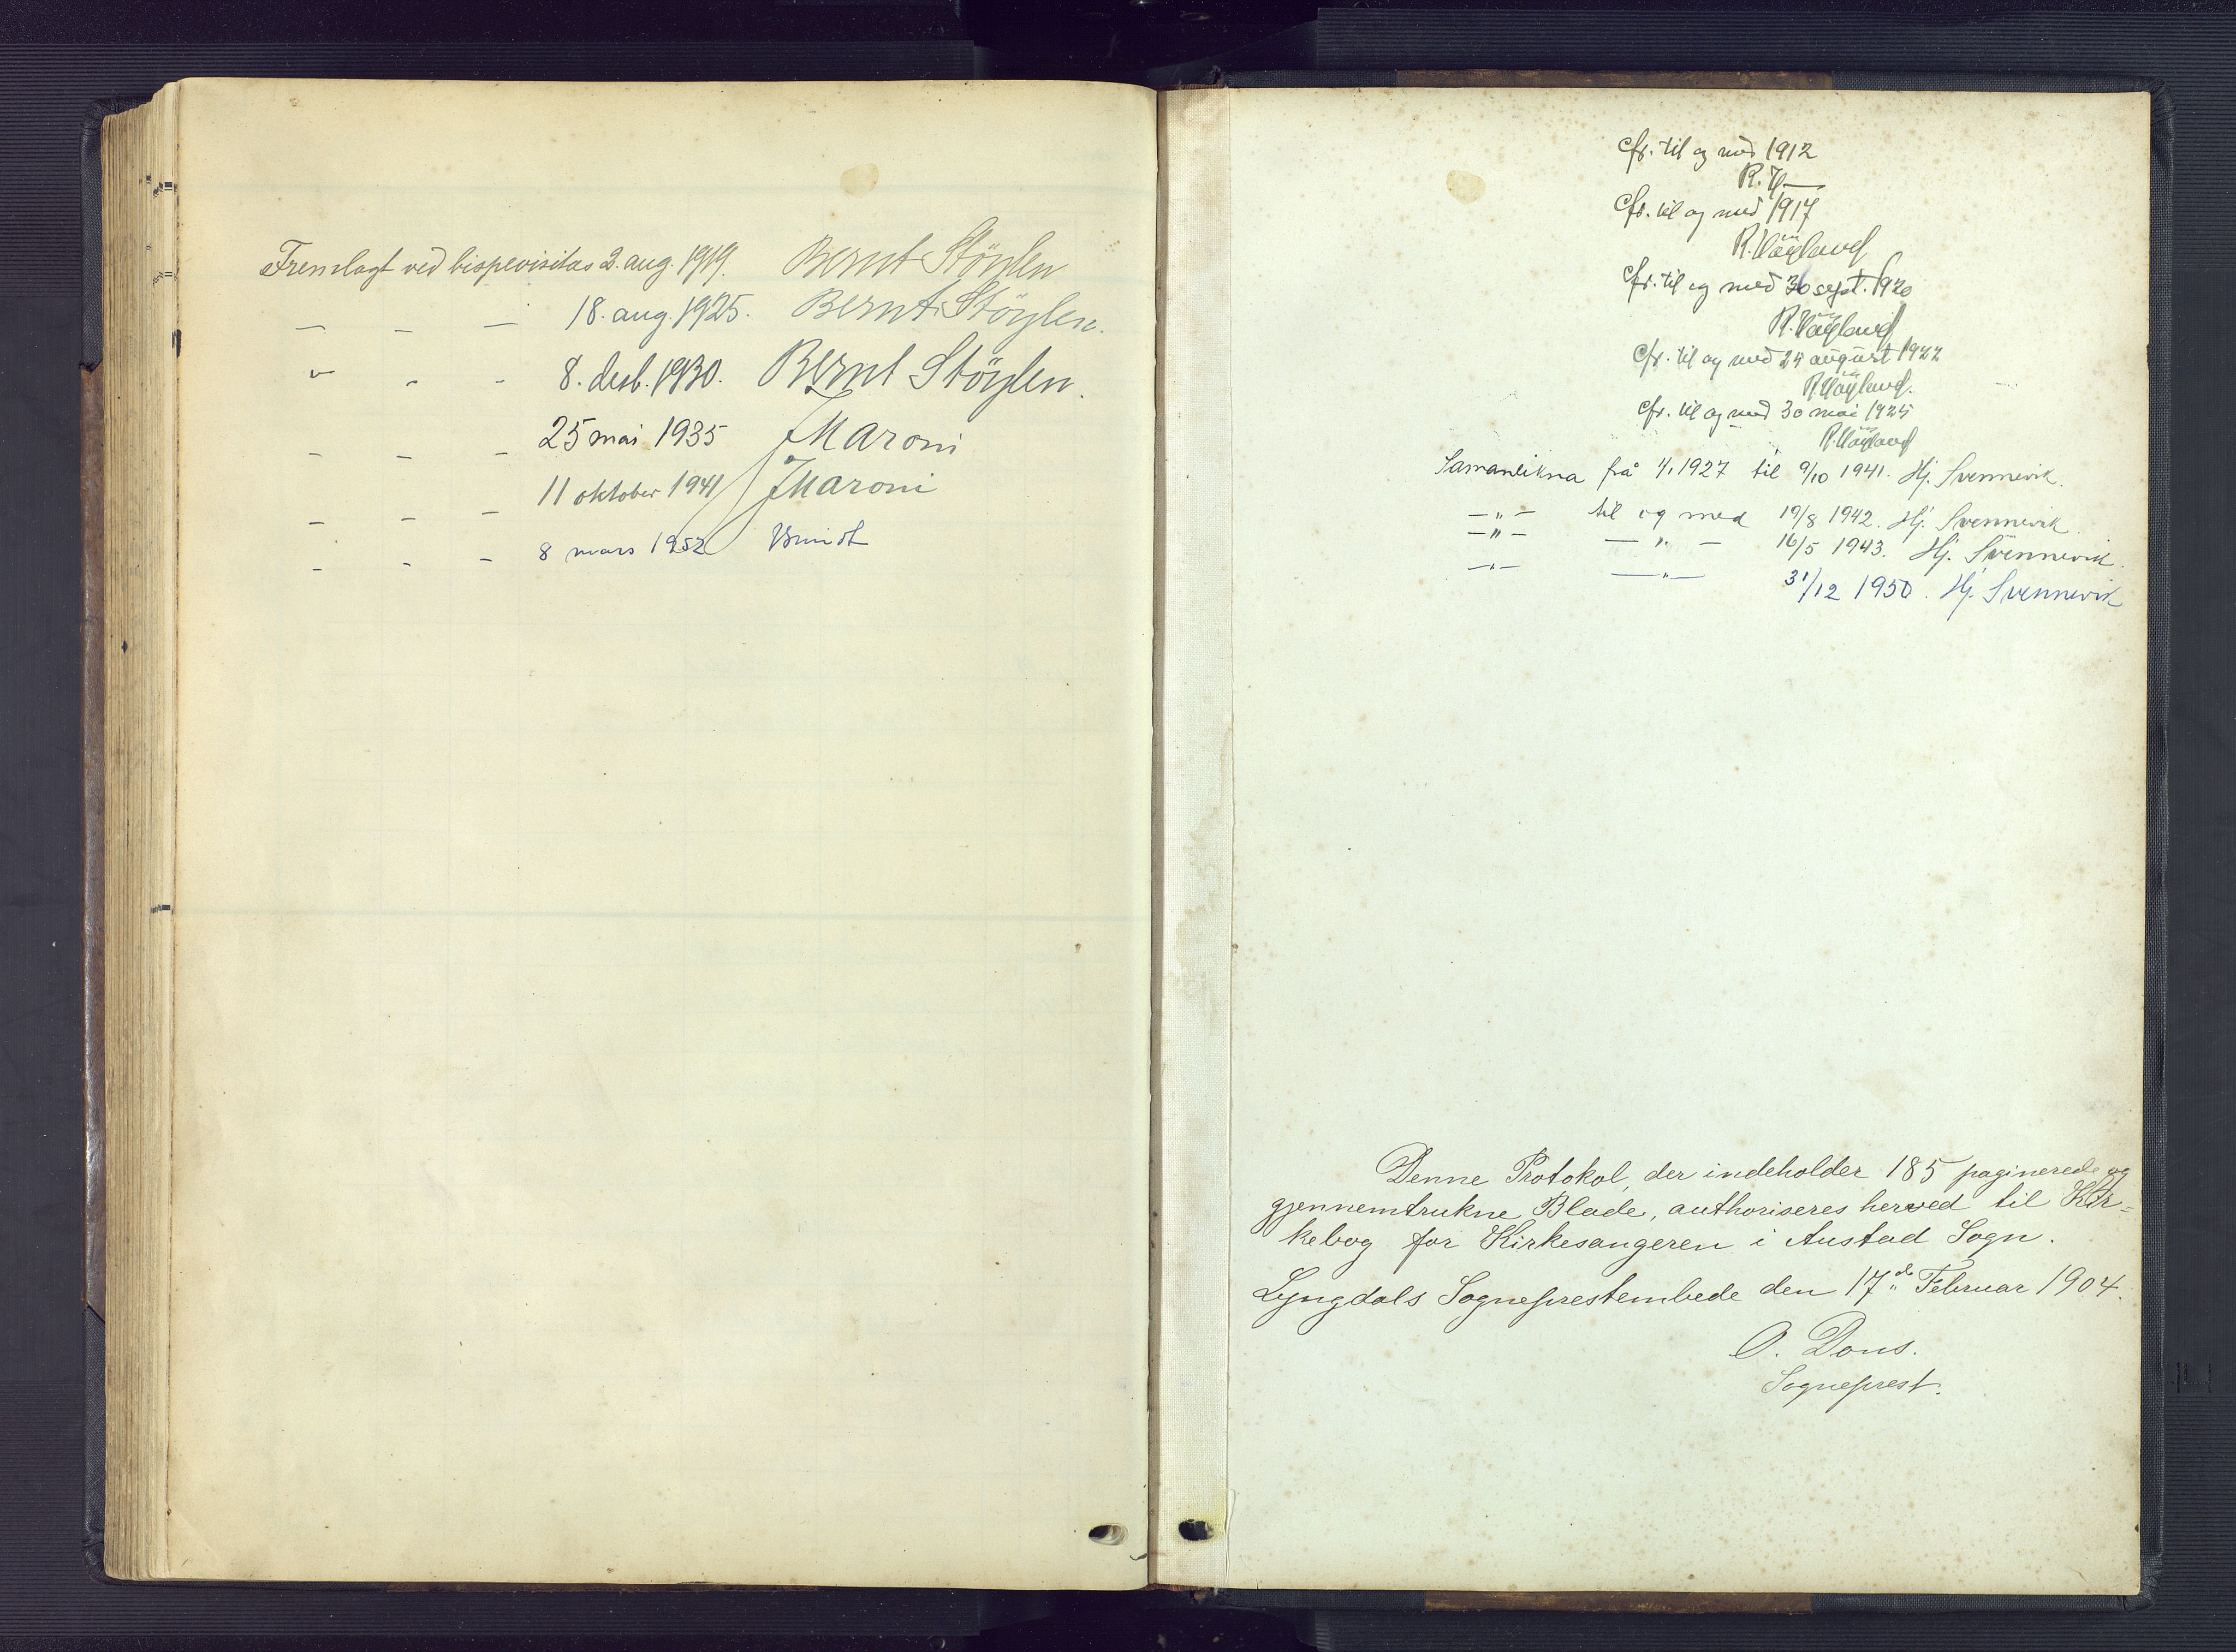 Fremlagt ved bispevisitas 2. aug. 1919. Bernt Støylen
— — — 18. aug. 1925. Bernt Støylen.
" - - 8. desb. 1930. Bernt Støylen.
- - - 25 mai 1935 J Maroni
- - - 11 oktober 1941 J Maroni
- - - 8 mars 1952
cfr. til og med 1912
R. H—
cfr. til og med 1917
R. Høyland
cfr. til og med 30 sept. 1920
R. Høyland
cfr. til og med 24 august 1922
R. Høyland.
cfr. til og med 30 mai 1925
R. Høyland
Samanlikna frå 1/1 1927 til 9/10 1941. Hj. Svennevik.
—"— til og med 19/8 1942. Hj. Svennevik.
—"— —"— 16/5 1943. Hj. Svennevik.
—"— —"— 31/12 1950. Hj. Svennevik
Denne Protokol, der indeholder 185 paginerede og
gjennemtrukne Blade, authoriseres herved til Kir=
kebog for Kirkesangeren i Austad Sogn.
Lyngdals Sogneprestembede den 17de Februar 1904.
O. Dons.
Sogneprest.